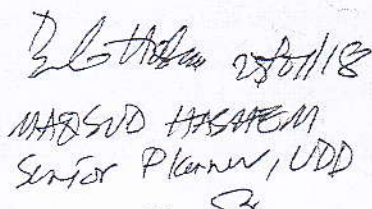 25/01/18
MAQSUD HASHEM
Senior Planner, UDD